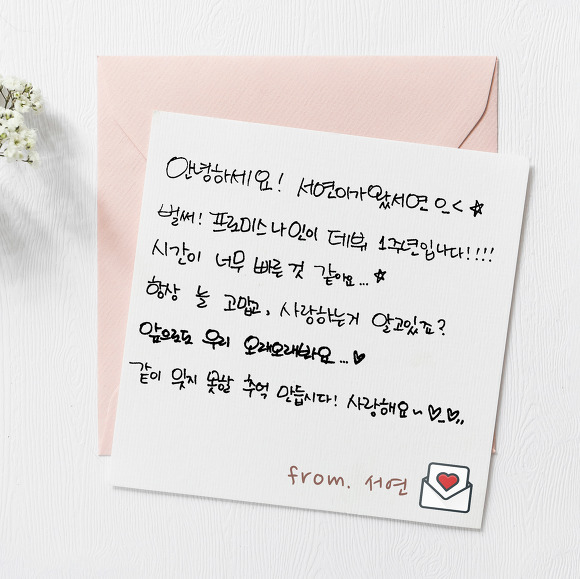 안녕하세요! 서연이가왔서연 으_< ☆
벌써! 프로미스나인이 데뷔 1주년입니다!!!!
시간이 너무 빠른 것 같아요...☆
항상 늘 고맙고, 사랑하는거 알고있죠?
앞으로도 우리 오래오래봐요...♥
같이 잊지 못할 추억 만듭시다! 사랑해요~♡_♡,,
from. 서연